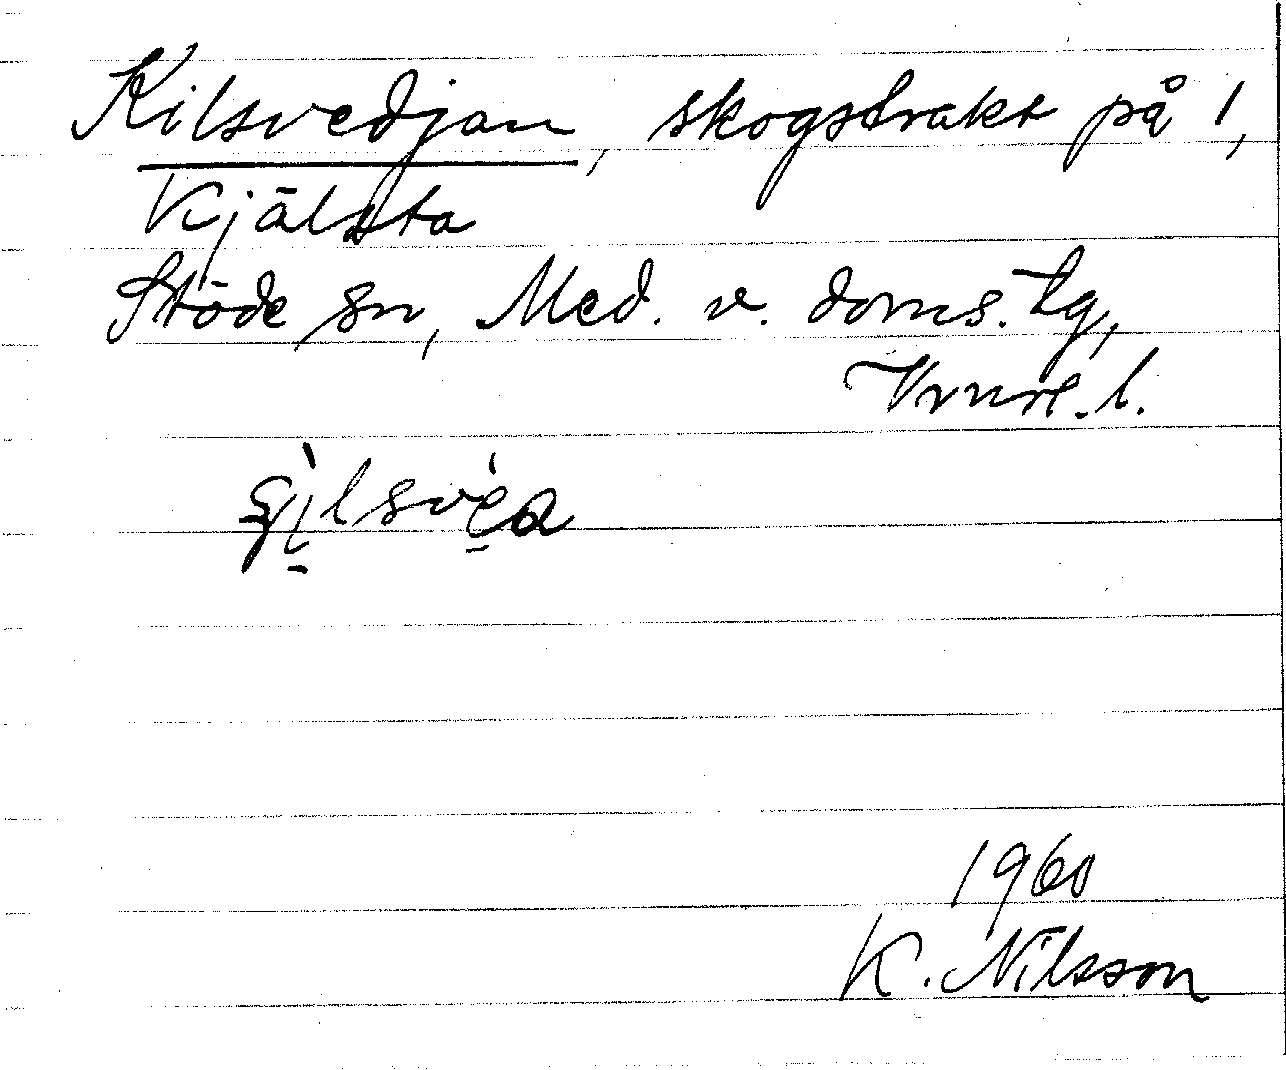 Kilsvedjan, skogstrakt på 1,
Kjälsta
Stöde sn, Med. v. doms. tg,
Vnrl. l.
1960
K. Nilsson